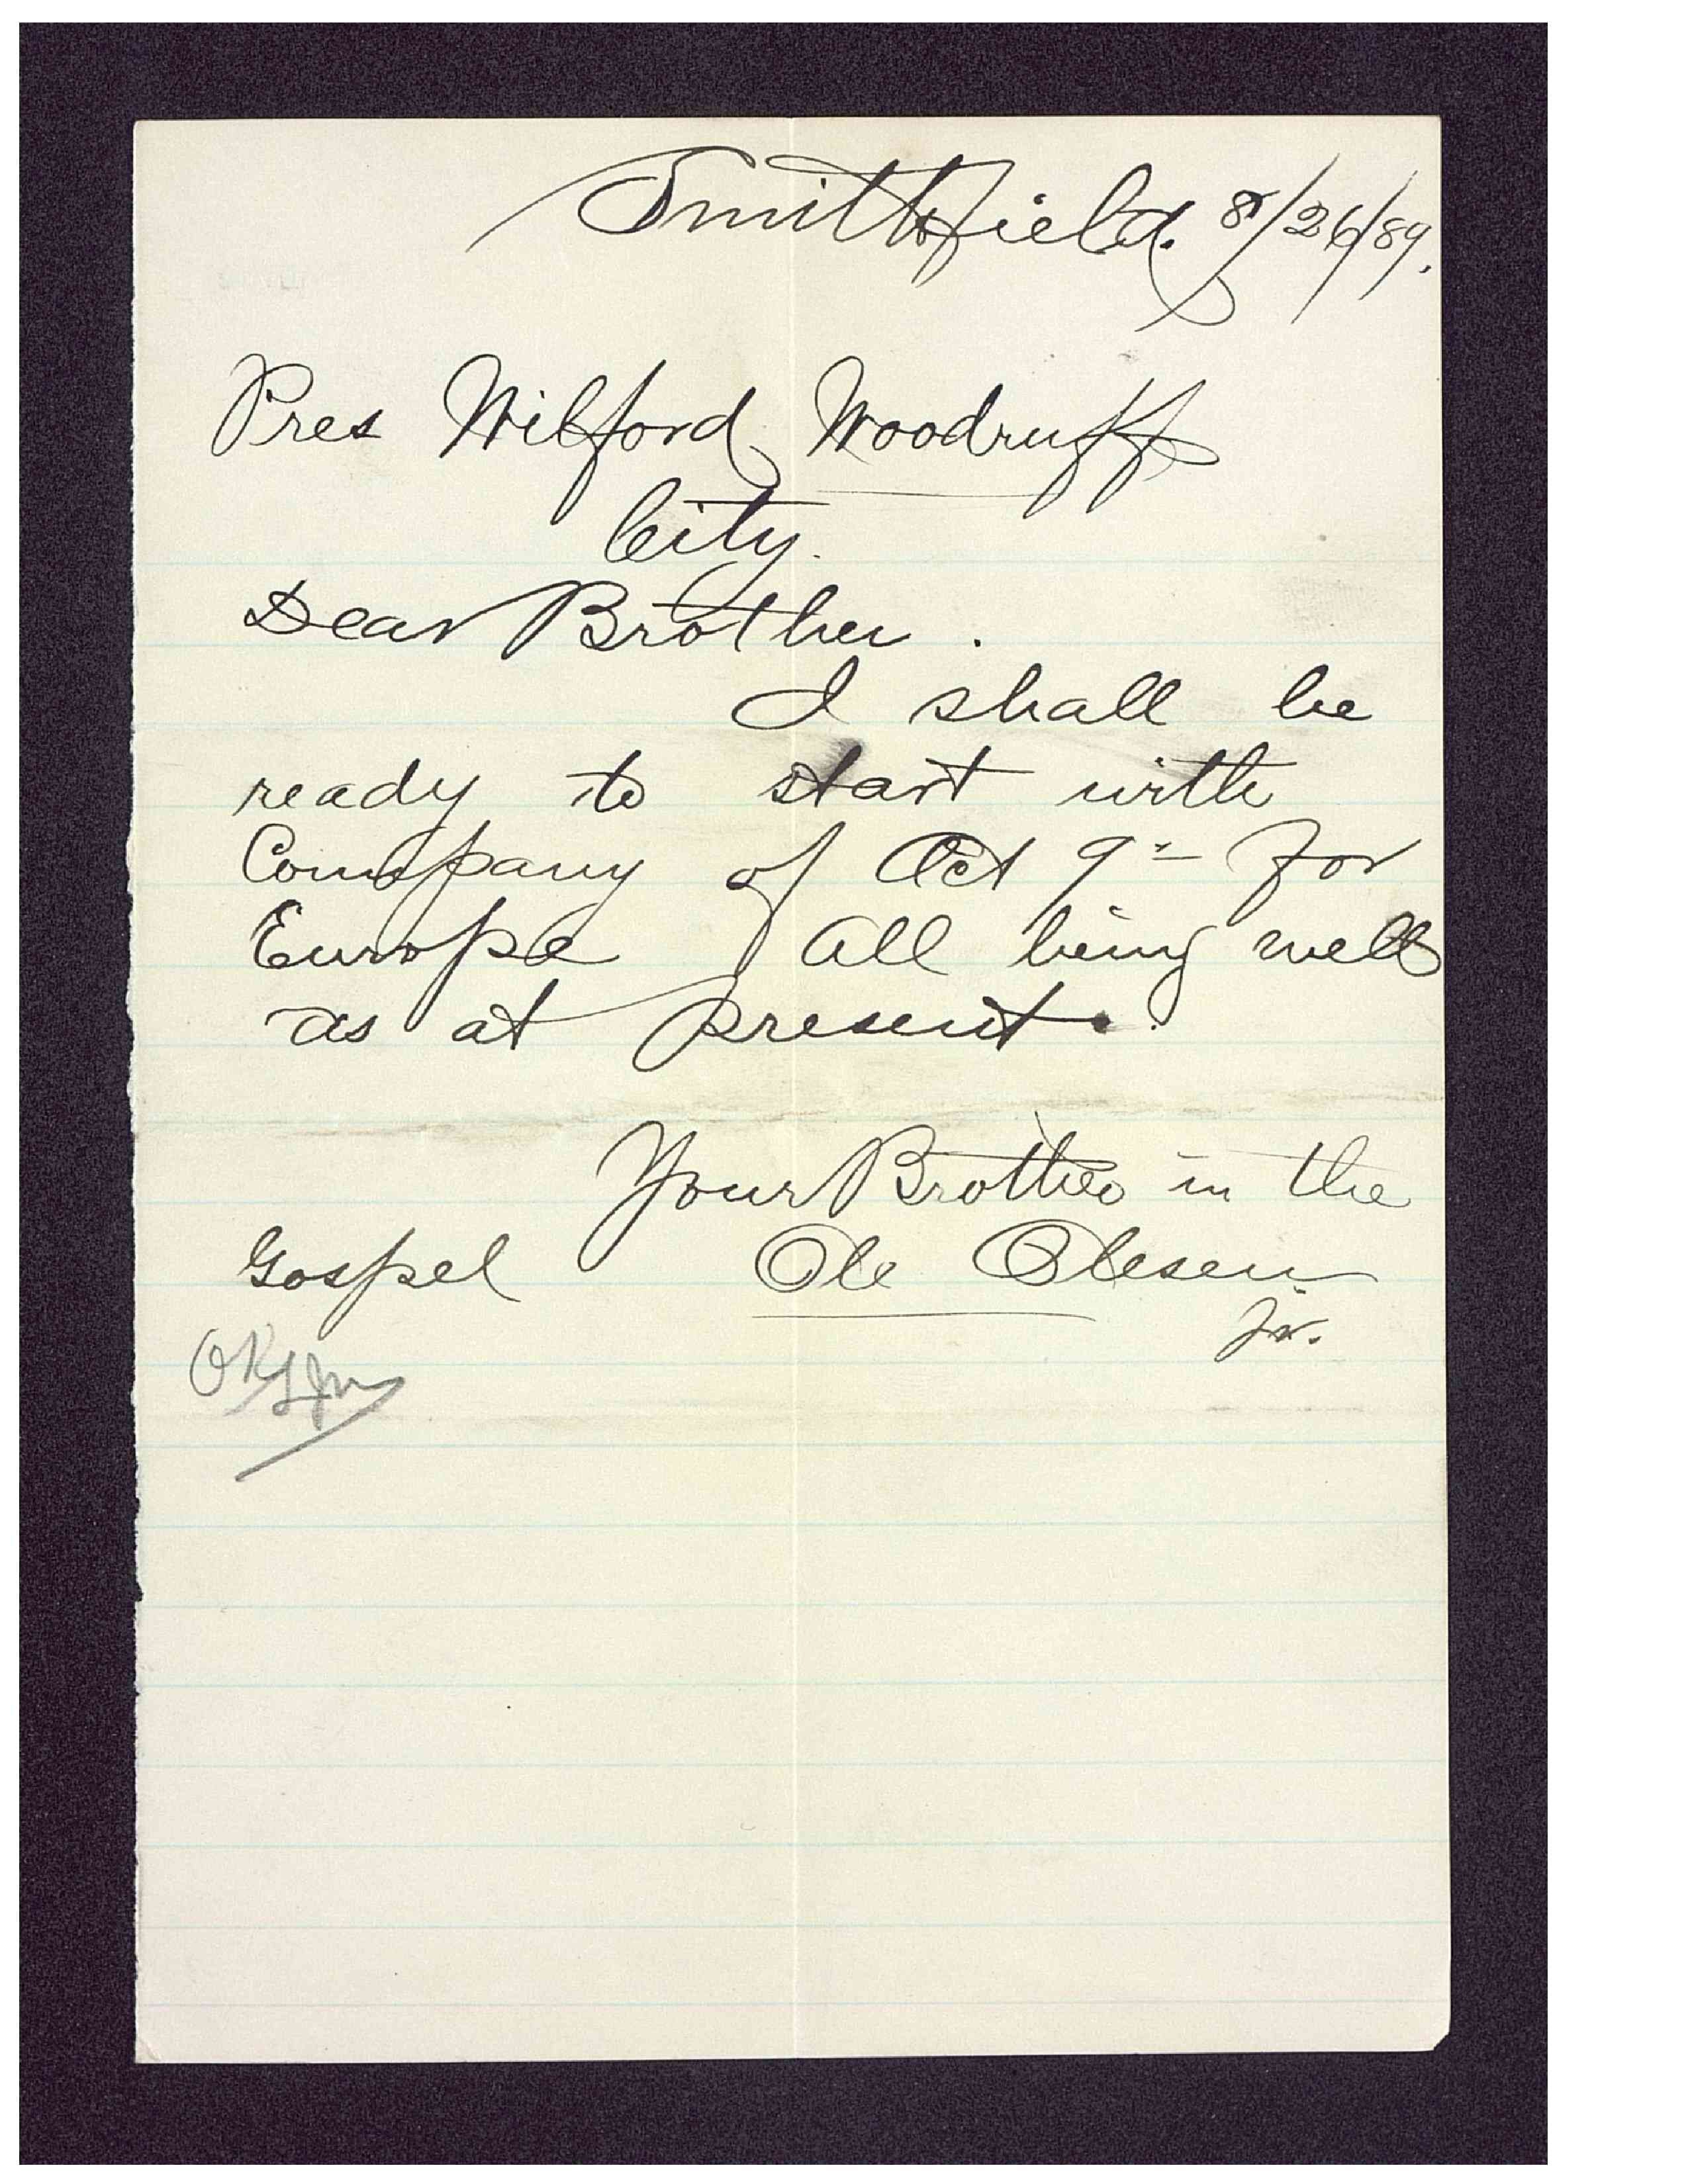 Smithfield. 8/26/89.
Pres Wilford Woodruff
City.
Dear Brother.
I shall be
ready to start with
Company of Oct 9th for
Europe All being well
as at present.
Your Brother in the
Gospel Ole Olesen
Jr.
OK